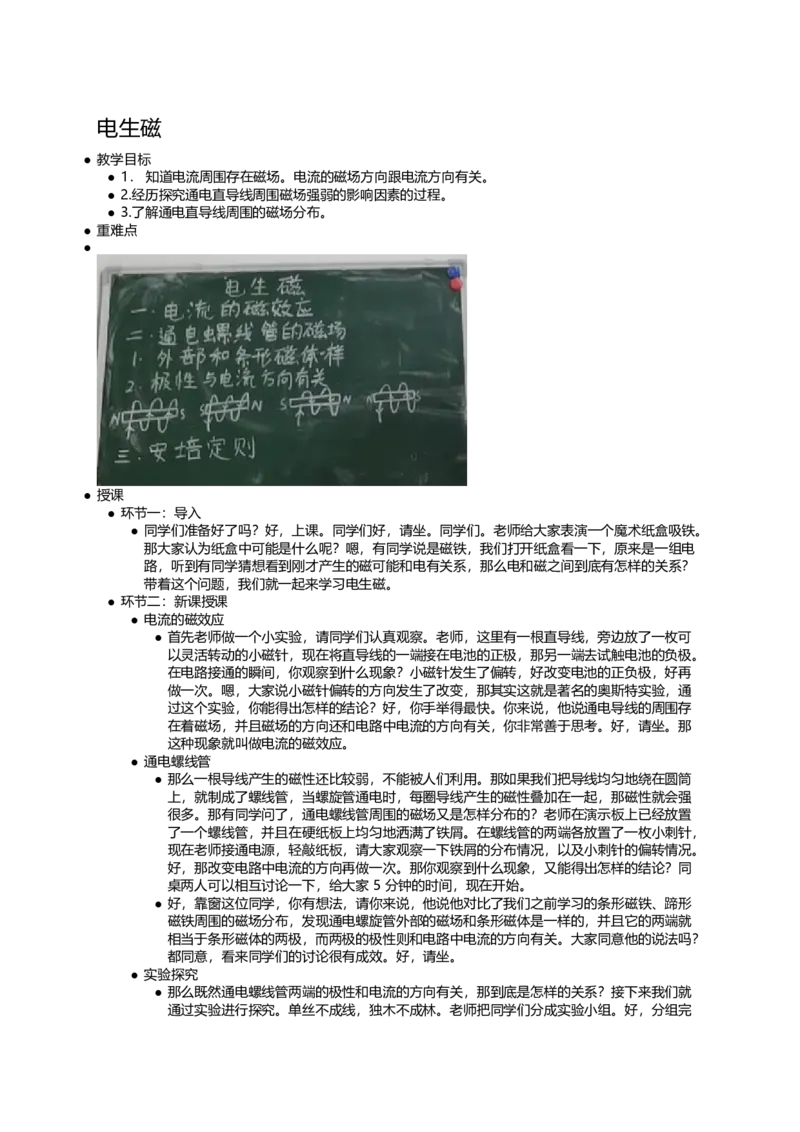 电生磁
教学目标
1. 知道电流周围存在磁场。电流的磁场方向跟电流方向有关。
2.经历探究通电直导线周围磁场强弱的影响因素的过程。
3.了解通电直导线周围的磁场分布。
重难点
电生磁
一.电流的磁效应
二.通电螺线管的磁场
1.外部和条形磁体一样
2.极性与电流方向有关
N S S N S N N S
三.安培定则
授课
环节一：导入
同学们准备好了吗？好，上课。同学们好，请坐。同学们。老师给大家表演一个魔术纸盒吸铁。
那大家认为纸盒中可能是什么呢？嗯，有同学说是磁铁，我们打开纸盒看一下，原来是一组电
路，听到有同学猜想看到刚才产生的磁可能和电有关系，那么电和磁之间到底有怎样的关系？
带着这个问题，我们就一起来学习电生磁。
环节二：新课授课
电流的磁效应
首先老师做一个小实验，请同学们认真观察。老师，这里有一根直导线，旁边放了一枚可
以灵活转动的小磁针，现在将直导线的一端接在电池的正极，那另一端去试触电池的负极。
在电路接通的瞬间，你观察到什么现象？小磁针发生了偏转，好改变电池的正负极，好再
做一次。嗯，大家说小磁针偏转的方向发生了改变，那其实这就是著名的奥斯特实验，通
过这个实验，你能得出怎样的结论？好，你手举得最快。你来说，他说通电导线的周围存
在着磁场，并且磁场的方向还和电路中电流的方向有关，你非常善于思考。好，请坐。那
这种现象就叫做电流的磁效应。
通电螺线管
那么一根导线产生的磁性还比较弱，不能被人们利用。那如果我们把导线均匀地绕在圆筒
上，就制成了螺线管，当螺旋管通电时，每圈导线产生的磁性叠加在一起，那磁性就会强
很多。那有同学问了，通电螺线管周围的磁场又是怎样分布的？老师在演示板上已经放置
了一个螺线管，并且在硬纸板上均匀地洒满了铁屑。在螺线管的两端各放置了一枚小刺针，
现在老师接通电源，轻敲纸板，请大家观察一下铁屑的分布情况，以及小刺针的偏转情况。
好，那改变电路中电流的方向再做一次。那你观察到什么现象，又能得出怎样的结论？同
桌两人可以相互讨论一下，给大家 5 分钟的时间，现在开始。
好，靠窗这位同学，你有想法，请你来说，他说他对比了我们之前学习的条形磁铁、蹄形
磁铁周围的磁场分布，发现通电螺旋管外部的磁场和条形磁体是一样的，并且它的两端就
相当于条形磁体的两极，而两极的极性则和电路中电流的方向有关。大家同意他的说法吗？
都同意，看来同学们的讨论很有成效。好，请坐。
实验探究
那么既然通电螺线管两端的极性和电流的方向有关，那到底是怎样的关系？接下来我们就
通过实验进行探究。单丝不成线，独木不成林。老师把同学们分成实验小组。好，分组完